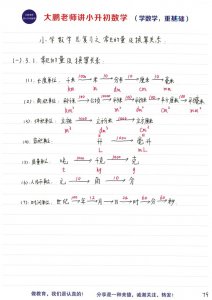 大鹏老师讲小升初数学 （学数学，重基础）
小学数学总复习之常见的量及换算关系
(一).3.1. 常见的量及换算关系
(1). 长度单位: 千米 1000 米 10 分米 10 厘米 10 毫米
km m dm cm mm
(2). 面积单位: 平方千米 100 公顷 10000 平方米 100 平方分米 100 平方厘米
km² m² dm² cm²
(3). 体积单位: 立方米 1000 立方分米 1000 立方厘米
m³ dm³ cm³
(4). 容积单位: 升 1000 毫升
L mL
(5). 质量单位: 吨 1000 千克 1000 克
t kg g
(6). 人民币单位: 元 10 角 10 分
(7). 时间单位: 世纪 100 年 12 月 日 24 时 60 分 60 秒
做教育，我们是认真的！ 分享是一种美德，感谢关注、转发！